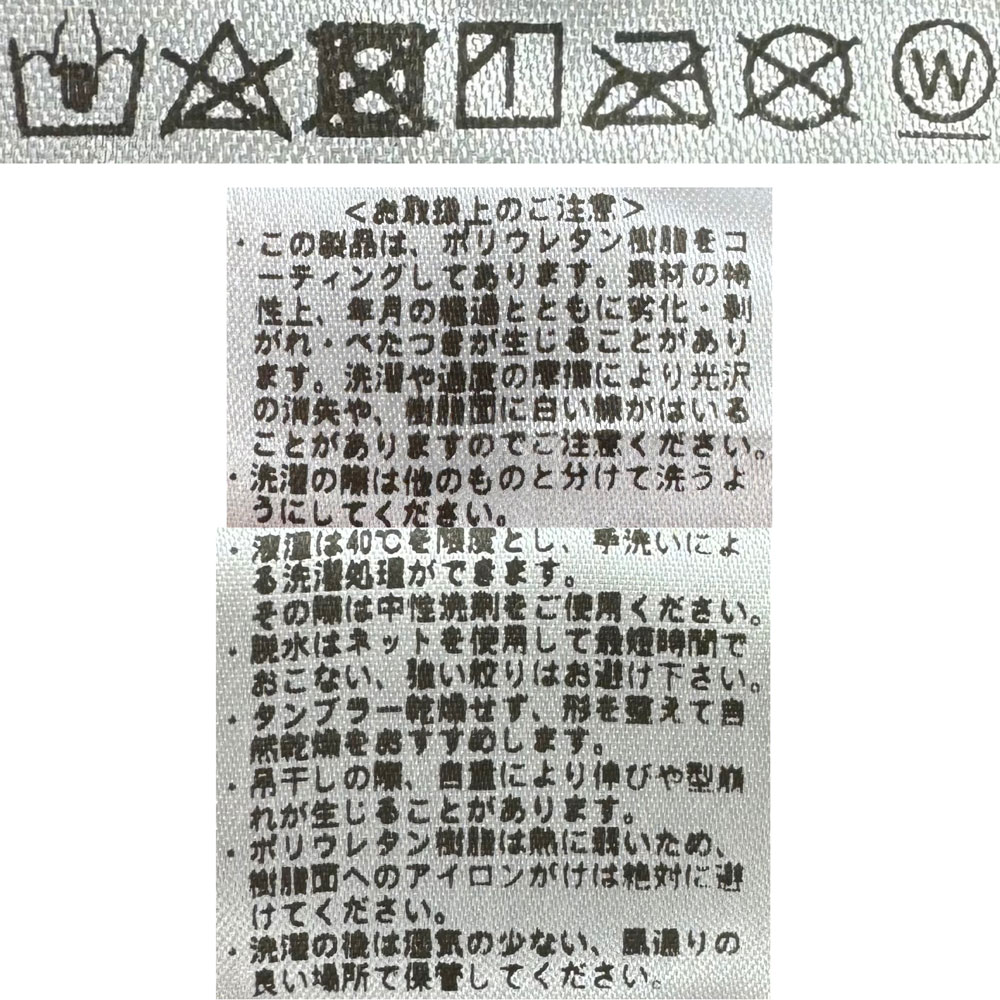 W
＜お取扱上のご注意＞
・この製品は、ポリウレタン樹脂をコ
ーティングしてあります。素材の特
性上、年月の経過とともに劣化・剥
がれ・べたつきが生じることがあり
ます。洗濯や過度の摩擦により光沢
の消失や、樹脂面に白い線がはいる
ことがありますのでご注意ください。
・洗濯の際は他のものと分けて洗うよ
うにしてください。
・液温は40℃を限度とし、手洗いによ
る洗濯処理ができます。
その際は中性洗剤をご使用ください。
・脱水はネットを使用して最短時間で
おこない、強い絞りはお避け下さい。
・タンブラー乾燥せず、形を整えて自
然乾燥をおすすめします。
・吊干しの際、自重により伸びや型崩
れが生じることがあります。
・ポリウレタン樹脂は熱に弱いため、
樹脂面へのアイロンがけは絶対に避
けてください。
・洗濯の後は湿気の少ない、風通りの
良い場所で保管してください。